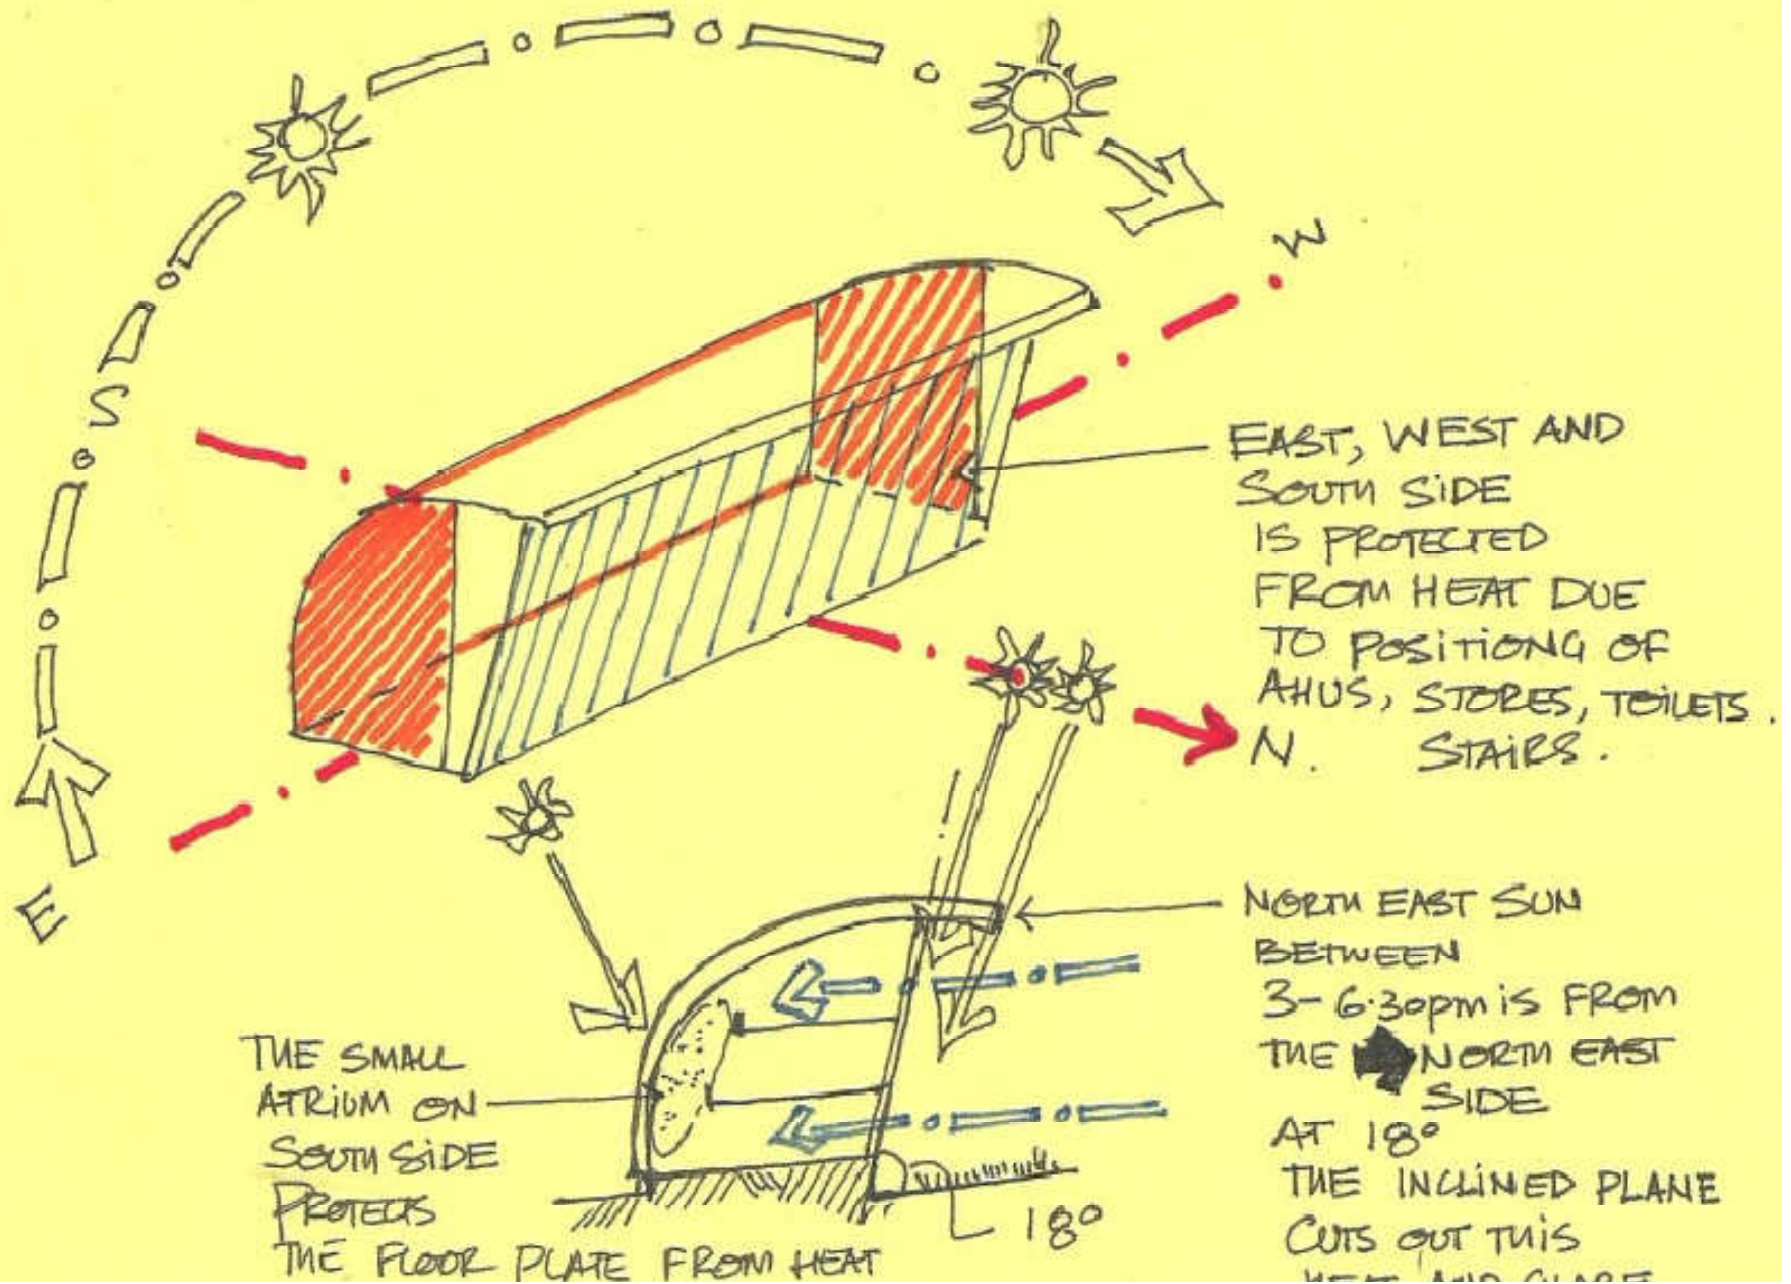 S
W
E
N.
EAST, WEST AND
SOUTH SIDE
IS PROTECTED
FROM HEAT DUE
TO POSITIONG OF
AHUS, STORES, TOILETS.
STAIRS.
NORTH EAST SUN
BETWEEN
3-6.30pm is FROM
THE NORTH EAST
SIDE
AT 18°
THE INCLINED PLANE
CUTS OUT THIS
HEAT AND GLARE
THE SMALL
ATRIUM ON
SOUTH SIDE
PROTECTS
THE FLOOR PLATE FROM HEAT
18°